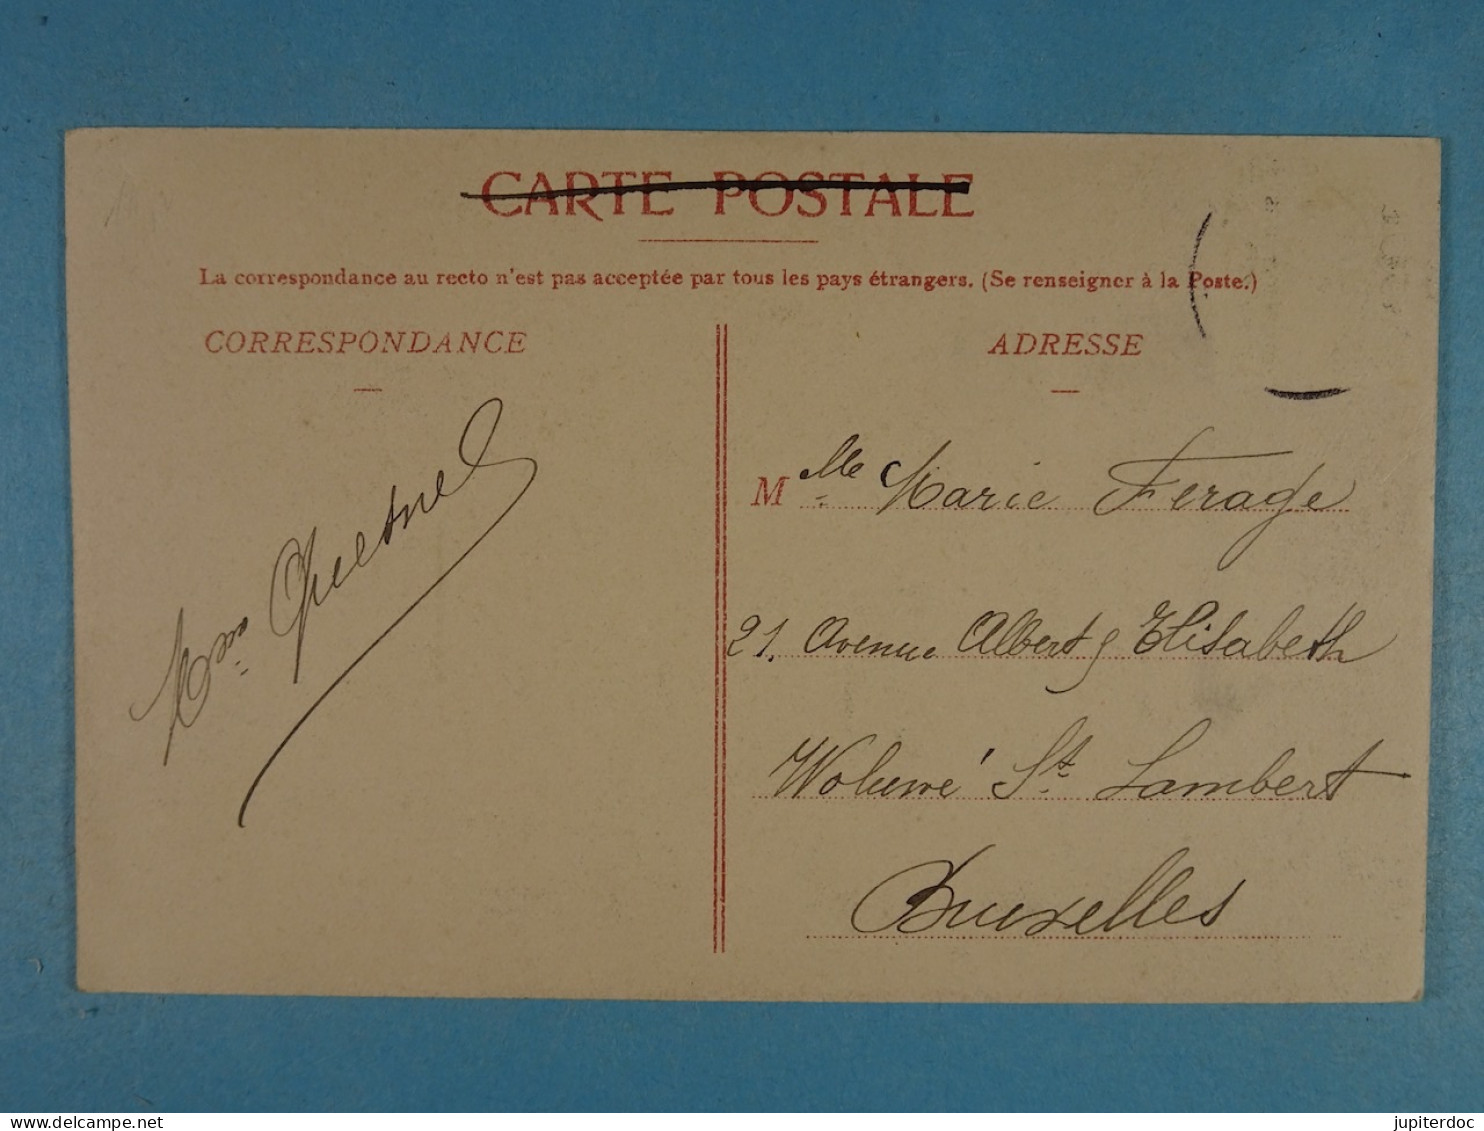 CARTE POSTALE
La correspondance au recto n'est pas acceptée par tous les pays étrangers. (Se renseigner à la Poste.)
CORRESPONDANCE
Mme Quesnel
ADRESSE
Mlle Marie Ferage
21. Avenue Albert & Elisabeth
Woluwé St Lambert
Bruxelles
jupiterdoc